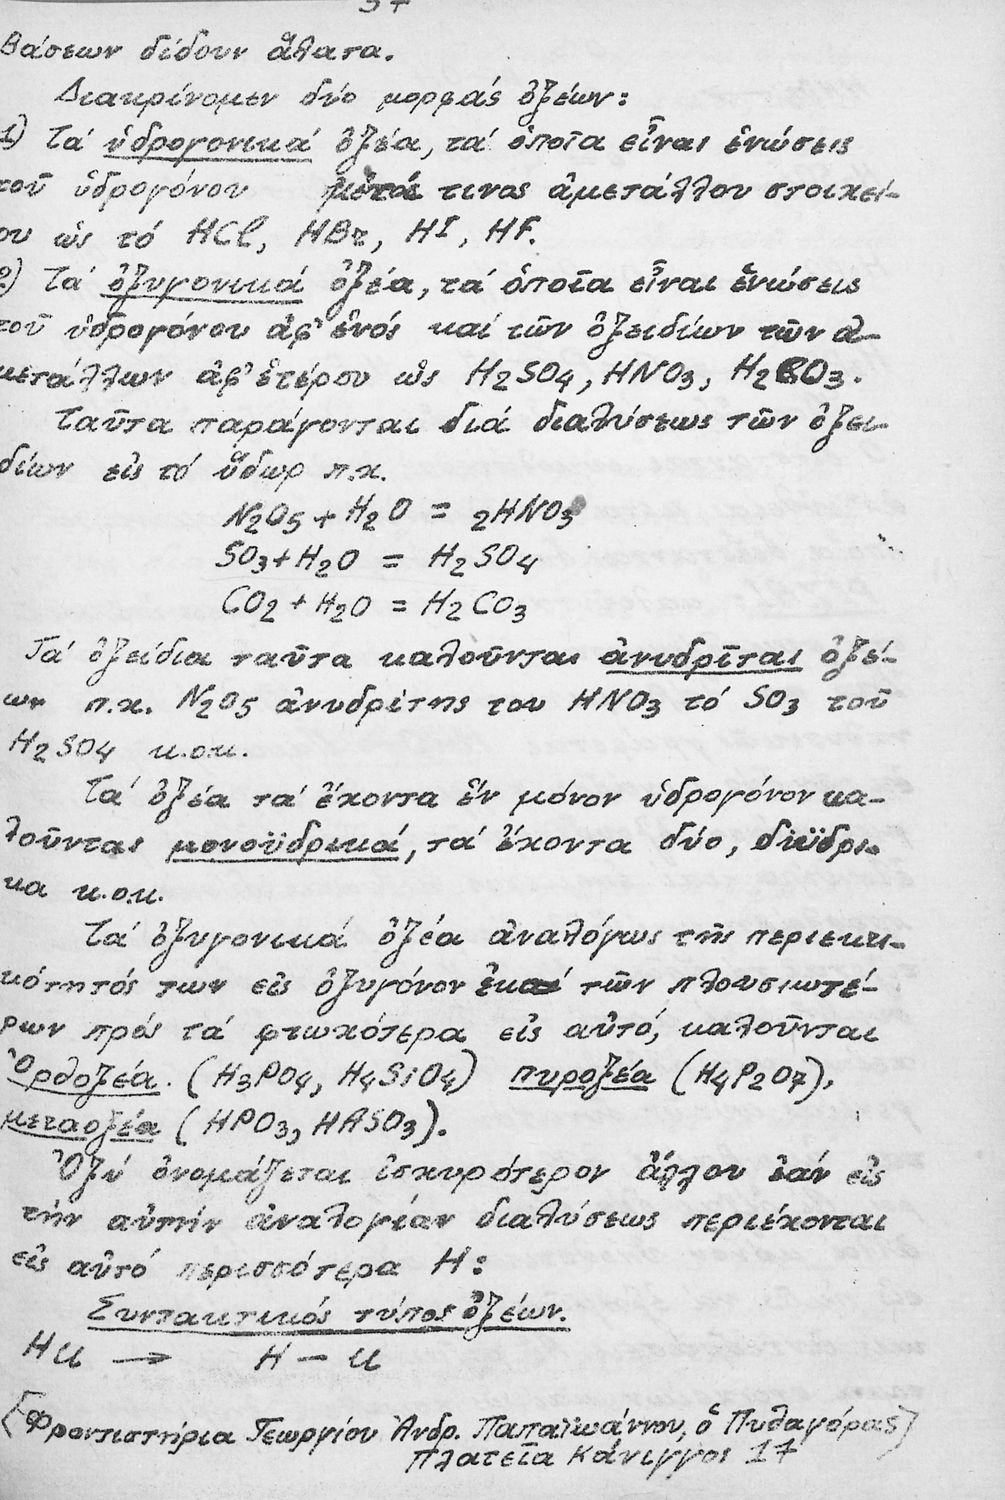 βάσεων δίδουν ἅλατα.
Διακρίνομεν δύο μορφάς ὀξέων:
1) Τά ὑδρογονικά ὀξέα, τά ὁποῖα εἶναι ἑνώσεις
τοῦ ὑδρογόνου μετά τινος ἀμετάλλου στοιχεί-
ου ὡς τό HCl, HBr, HI, HF.
2) Τά ὀξυγονικά ὀξέα, τά ὁποῖα εἶναι ἑνώσεις
τοῦ ὑδρογόνου ἀφ' ἑνός καί τῶν ὀξειδίων τῶν ἀ-
μετάλλων ἀφ' ἑτέρου ὡς H2SO4, HNO3, H2CO3.
Ταῦτα παράγονται διά διαλύσεως τῶν ὀξει-
δίων εἰς τό ὕδωρ π.χ.
N2O5 + H2O = 2HNO3
SO3 + H2O = H2SO4
CO2 + H2O = H2CO3
Τά ὀξείδια ταῦτα καλοῦνται ἀνυδρῖται ὀξέ-
ων π.χ. N2O5 ἀνυδρίτης του HNO3 τό SO3 τοῦ
H2SO4 κ.ο.κ.
Τά ὀξέα τά ἔχοντα ἕν μόνον ὑδρογόνον κα-
λοῦνται μονοϋδρικά, τά ἔχοντα δύο, διϋδρι-
κα κ.ο.κ.
Τά ὀξυγονικά ὀξέα ἀναλόγως τῆς περιεκτι-
κότητός των εἰς ὀξυγόνον τῶν πλουσιωτέ-
ρων πρός τά φτωχότερα εἰς αὐτό, καλοῦνται
Ὀρθοξέα. (H3PO4, H4SiO4) πυροξέα (H4P2O7),
μεταοξέα (HPO3, HASO3).
Ὀξύ ὀνομάζεται ἰσχυρότερον ἄλλου ἐάν εἰς
τήν αὐτήν ἀναλογίαν διαλύσεως περιέχονται
εἰς αὐτό περισσότερα H:
Συντακτικός τύπος ὀξέων.
Hu → H - u
[Φροντιστήρια Γεωργίου Ἀνδρ. Παπαϊωάννου, ὁ Πυθαγόρας]
Πλατεῖα Κάνιγγος 17